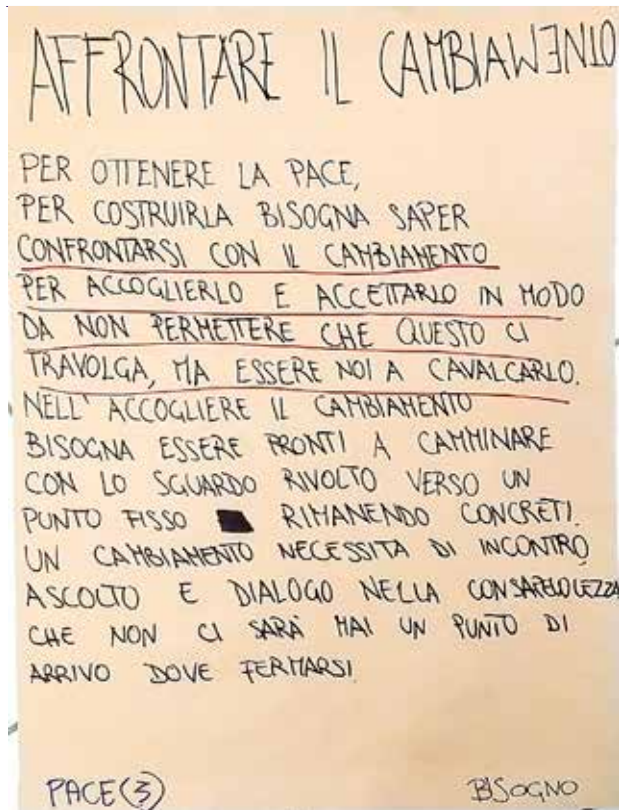 AFFRONTARE IL CAMBIAMENTO
PER OTTENERE LA PACE,
PER COSTRUIRLA BISOGNA SAPER
CONFRONTARSI CON IL CAMBIAMENTO
PER ACCOGLIERLO E ACCETTARLO IN MODO
DA NON PERMETTERE CHE QUESTO CI
TRAVOLGA, MA ESSERE NOI A CAVALCARLO.
NELL'ACCOGLIERE IL CAMBIAMENTO
BISOGNA ESSERE PRONTI A CAMMINARE
CON LO SGUARDO RIVOLTO VERSO UN
PUNTO FISSO RIMANENDO CONCRETI.
UN CAMBIAMENTO NECESSITA DI INCONTRO,
ASCOLTO E DIALOGO NELLA CONSAPEVOLEZZA
CHE NON CI SARÀ MAI UN PUNTO DI
ARRIVO DOVE FERMARSI.
PACE(3) BISOGNO